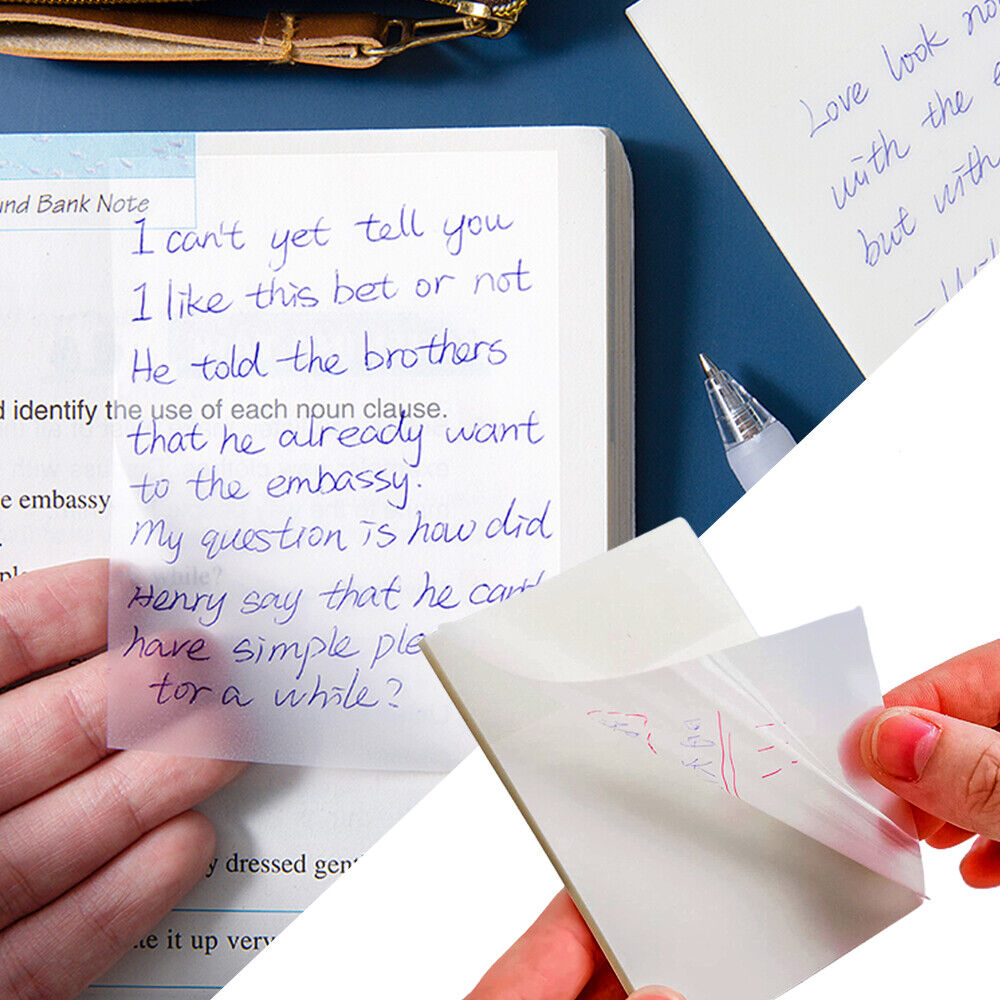 und Bank Note
I can't yet tell you
I like this bet or not
He told the brothers
d identify the use of each noun clause.
that he already want
to the embassy.
e embassy
My question is how did
Henry say that he can't
have simple ple
for a while?
y dressed gent
te it up very
Love look no
with the e
but with